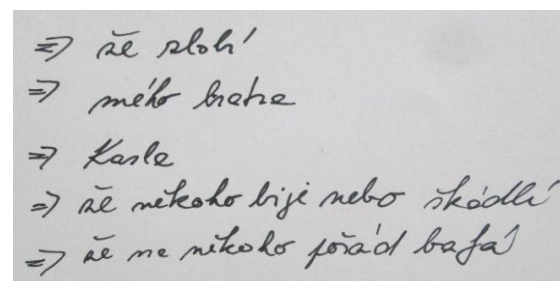 => že zlobí
=> mého bratra
=> Karla
=> že někoho bije nebo škádlí
=> že na někoho pořád bafá